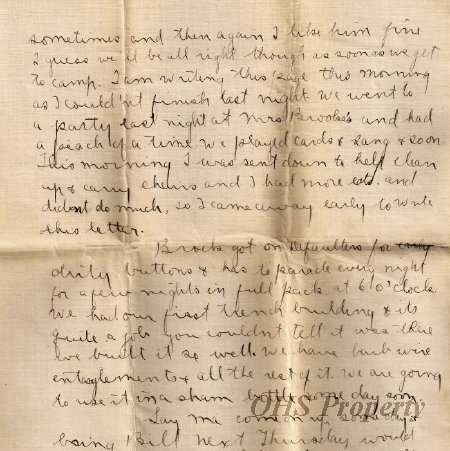 sometimes and then again I like him fine
I guess we'll be all right though as soon as we get
to camp. I am writing this page this morning
as I could'nt finish last night. We went to
a party last night at Mrs Brooks's and had
a peach of a time. We played cards & sang & so on.
This morning I was sent down to help clean
up & carry chairs and I had more eats. and
didn't do much, so I came away early to write
this letter.
Brock got on Defaulters for
dirty buttons & has to parade every night
for a few nights in full pack at 6 o'clock
We had our first trench building & its
quite a job you couldn't tell it was there
we built it so well. We have barb wire
entanglements & all the rest of it. We are going
to use it in a sham battle some day soon
Say Ma come on up some day &
bring Bill next Thursday would
OHS Property